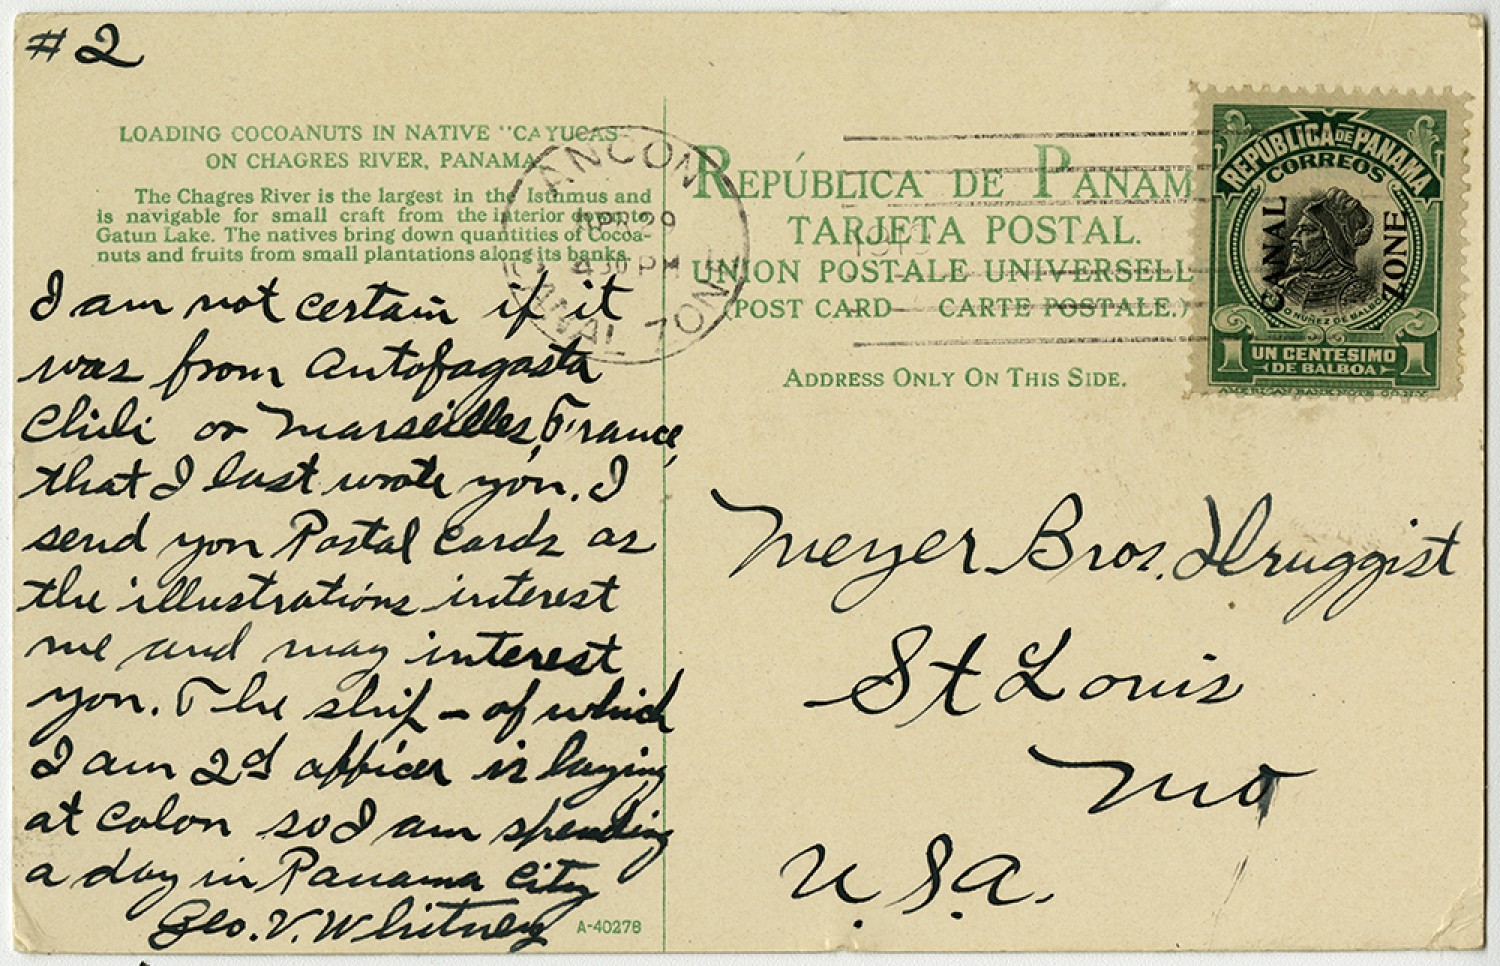 #2
LOADING COCOANUTS IN NATIVE "CAYUCAS"
ON CHAGRES RIVER, PANAMA
The Chagres River is the largest in the Isthmus and
is navigable for small craft from the interior down to
Gatun Lake. The natives bring down quantities of Cocoa-
nuts and fruits from small plantations along its banks.
I am not certain if it
was from Autofagasta
Chili or Marseilles, France,
that I last wrote you. I
send you Postal Cards as
the illustrations interest
me and may interest
you. The ship - of which
I am 2d officer is laying
at Colon so I am spending
a day in Panama City
Geo. V. Whitney
A-40278
ANCON
APR 29
430 PM
CANAL ZONE
REPÚBLICA DE PANAM
TARJETA POSTAL.
UNION POSTALE UNIVERSELL
(POST CARD— CARTE POSTALE.)
ADDRESS ONLY ON THIS SIDE.
REPUBLICA DE PANAMA
CORREOS
CANAL ZONE
NUÑEZ DE BALBOA
1 UN CENTESIMO 1
DE BALBOA
AMERICAN BANK NOTE CO. N.Y.
Meyer Bros. Druggist
St Louis
Mo
U.S.A.